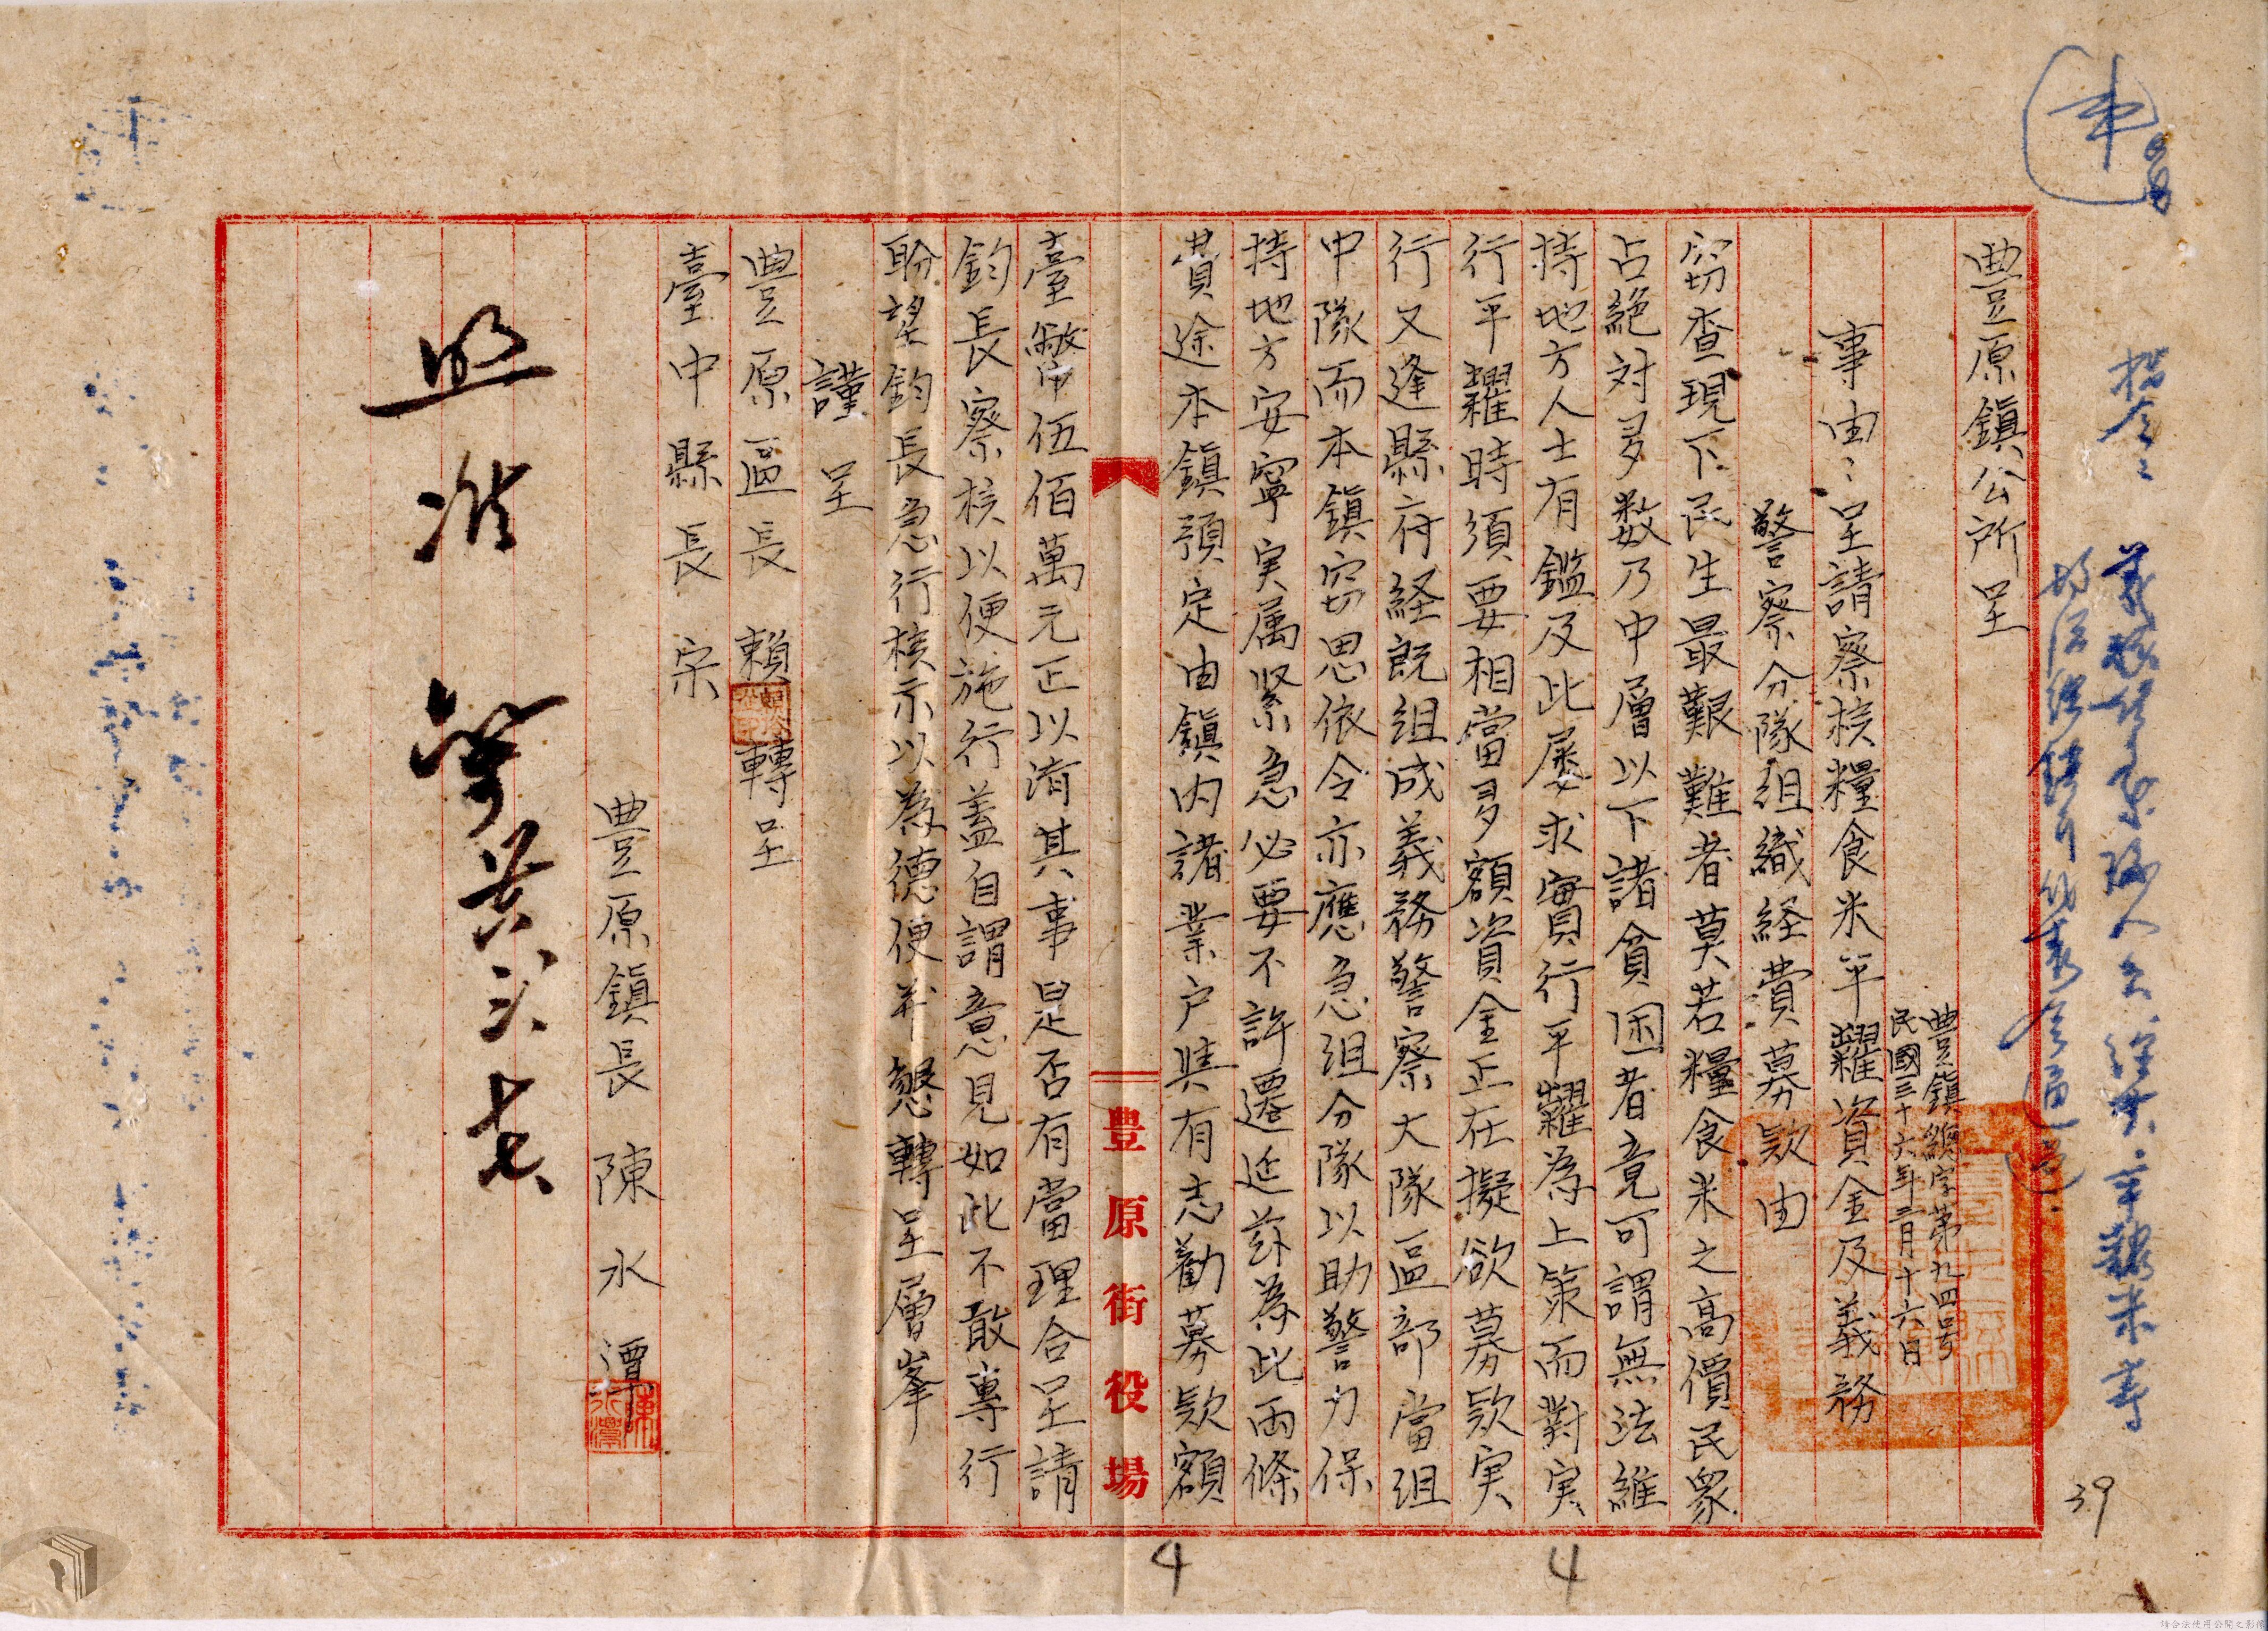 豊原鎮公所呈
豊鎮總字第九四号
民國三十六年三月十六日
事由:呈請察核糧食米平糶資金及義務
警察分隊組織経費募款由
窃查現下民生最艱難者莫若糧食米之高價民衆
占絶対多数乃中層以下諸貧困者竟可謂無法維
持地方人士有鑑及此屡求實行平糶為上策而對実
行平糶時須要相當多額資金正在擬欲募款実
行又逢縣府経既組成義務警察大隊區部當組
中隊而本鎮窃思依令亦應急組分隊以助警力保
持地方安寧実属緊急必要不許遷延茲為此両條
費途本鎮預定由鎮内諸業户與有志勸募款額
臺幣伍佰萬元正以濟其事是否有當理合呈請
鈞長察核以便施行蓋自謂意見如此不敢專行
盼望鈞長急行核示以為德便并懇轉呈層峯
謹呈
豊原區長 賴 轉呈
臺中縣長 宋
豊原鎮長 陳水潭
豊原街役場
39
4
4